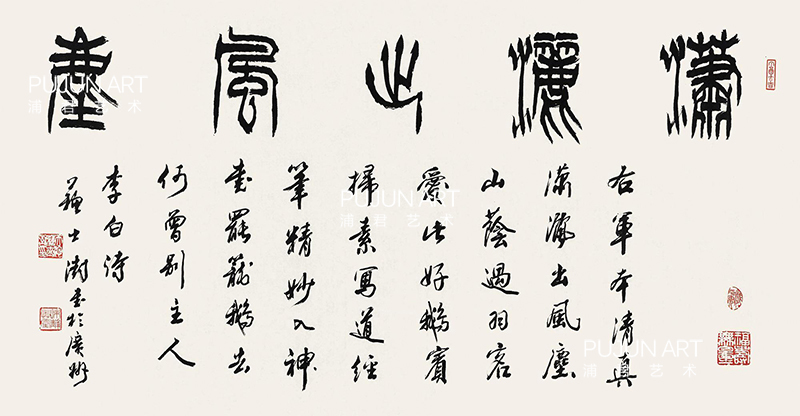 瀟灑出風塵
右軍本清真
瀟灑出風塵
山蔭過羽客
愛此好鵝賓
掃素寫道經
筆精妙入神
書罷籠鵝去
何曾别主人
李白詩
蘇士澍書於廣州
PUJUN ART
浦君艺术
PUJUN ART
浦君艺术
PUJUN ART
浦君艺术